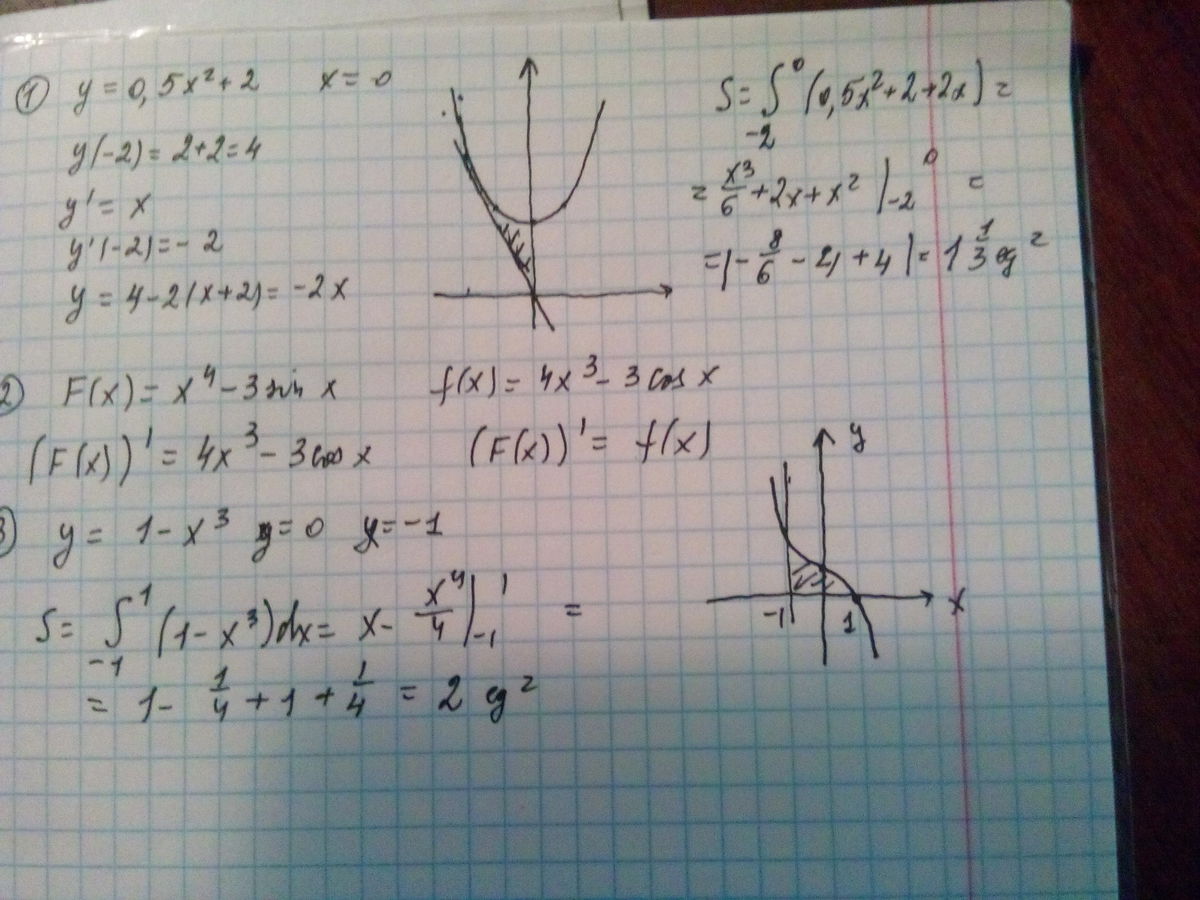 ① y = 0,5x² + 2   x = 0
y(-2) = 2+2 = 4
y' = x
y'(-2) = - 2
y = 4 - 2(x+2) = -2x
S = ∫₋₂⁰ (0,5x² + 2 + 2x) =
= x³/6 + 2x + x² |₋₂⁰ =
= |- 8/6 - 4 + 4| = 1 1/3 eg²
② F(x) = x⁴ - 3 sin x   f(x) = 4x³ - 3 cos x
(F(x))' = 4x³ - 3 cos x   (F(x))' = f(x)
③ y = 1 - x³   y = 0   x = -1
S = ∫₋₁¹ (1 - x³)dx = x - x⁴/4 |₋₁¹ =
= 1 - 1/4 + 1 + 1/4 = 2 eg²
y
-1 1 x